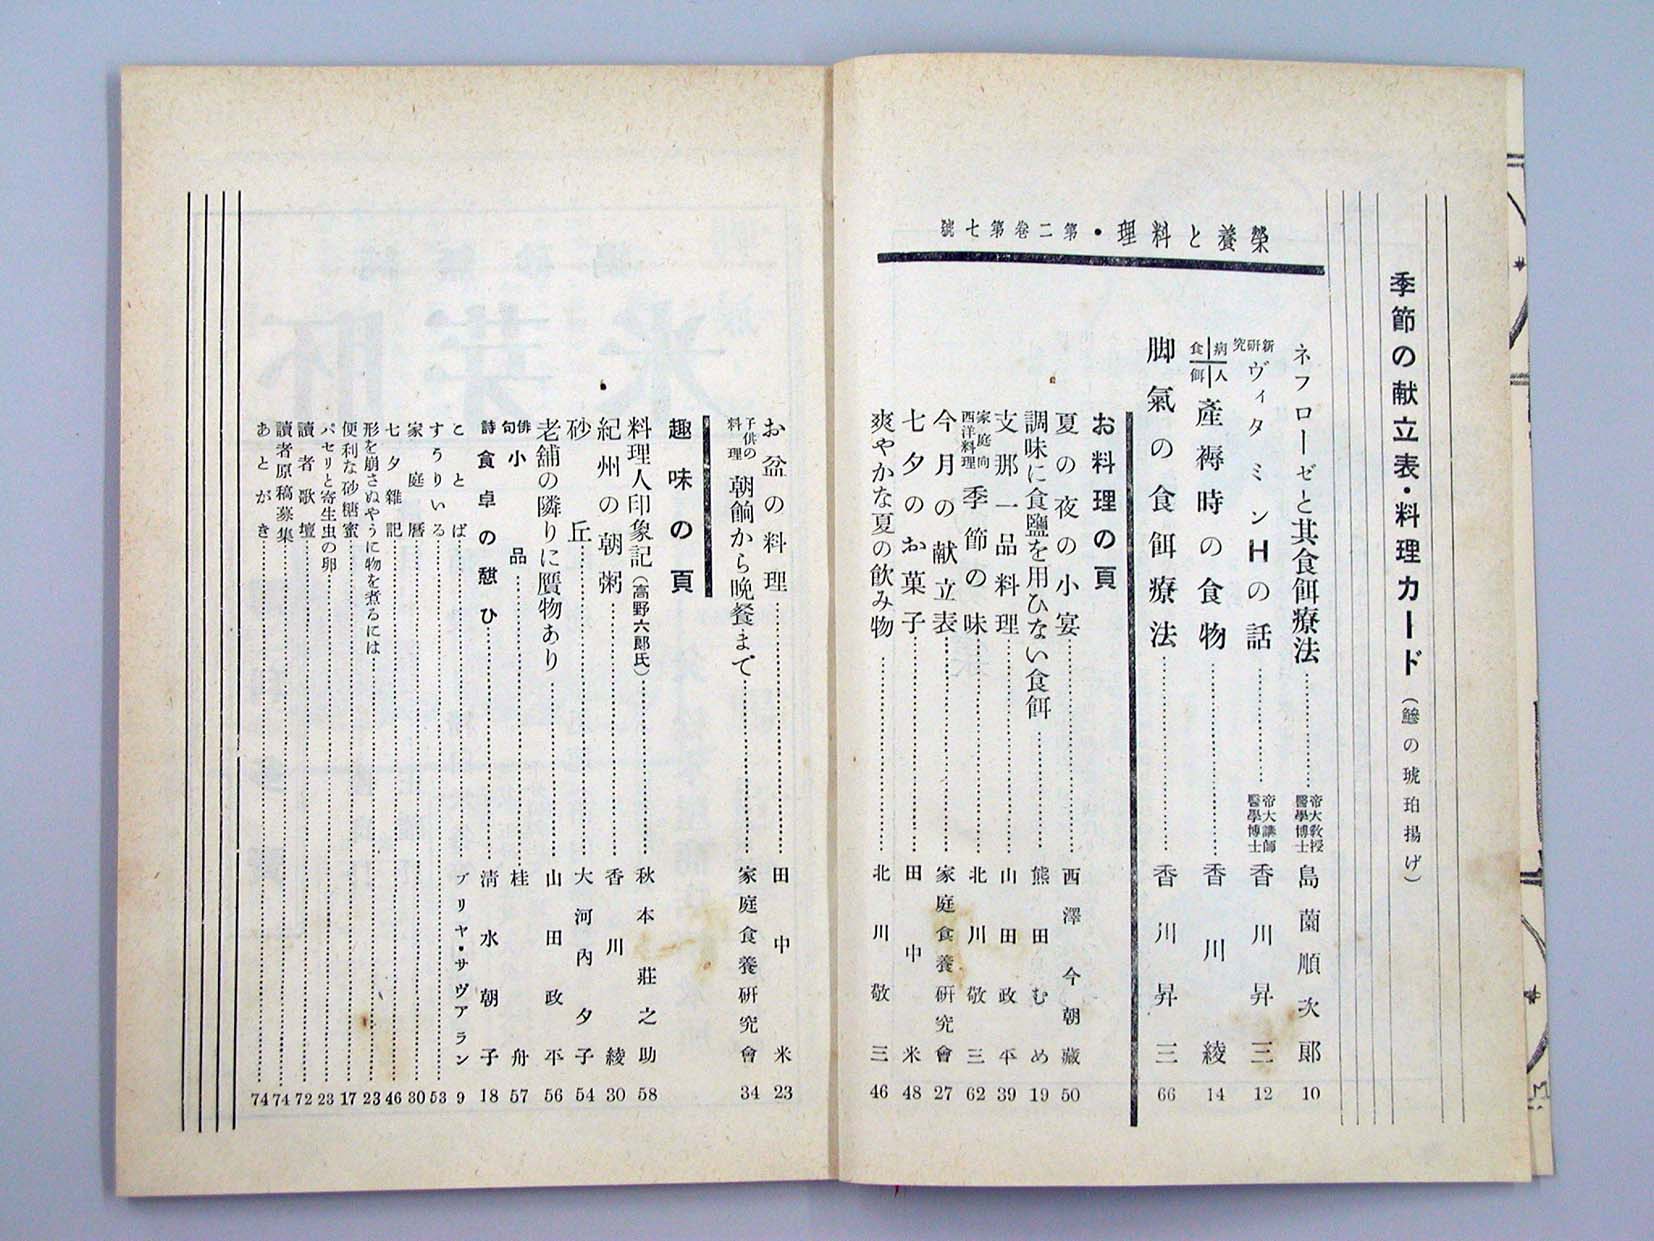 季節の献立表・料理カード（鯵の琥珀揚げ）
榮養と料理・第二卷第七號
ネフローゼと其食餌療法 帝大教授 醫學博士 島薗順次郎 10
新研究 ヴィタミンHの話 帝大講師 醫學博士 香川昇三 12
病人食餌 產褥時の食物 香川綾 14
脚氣の食餌療法 香川昇三 66
お料理の頁
夏の夜の小宴 西澤今朝藏 50
調味に食鹽を用ひない食餌 熊田むめ 19
支那一品料理 山田政平 39
家庭向西洋料理 季節の味 北川敬三 62
今月の献立表 家庭食養研究會 27
七夕のお菓子 田中米 48
爽やかな夏の飲み物 北川敬三 46
お盆の料理 田中米 23
子供の料理 朝餉から晩餐まで 家庭食養研究會 34
趣味の頁
料理人印象記（高野六郎氏） 秋本莊之助 58
紀州の朝粥 香川綾 30
砂丘 大河內夕子 54
老舗の隣りに贋物あり 山田政平 56
俳句 小品 桂舟 57
詩 食卓の憩ひ 清水朝子 18
ことば ブリヤ・サヴアラン 9
すうりいる 53
家庭曆 30
七夕雜記 46
形を崩さぬやうに物を煮るには 23
便利な砂糖蜜 17
パセリと寄生虫の卵 23
讀者歌壇 72
讀者原稿募集 74
あとがき 74